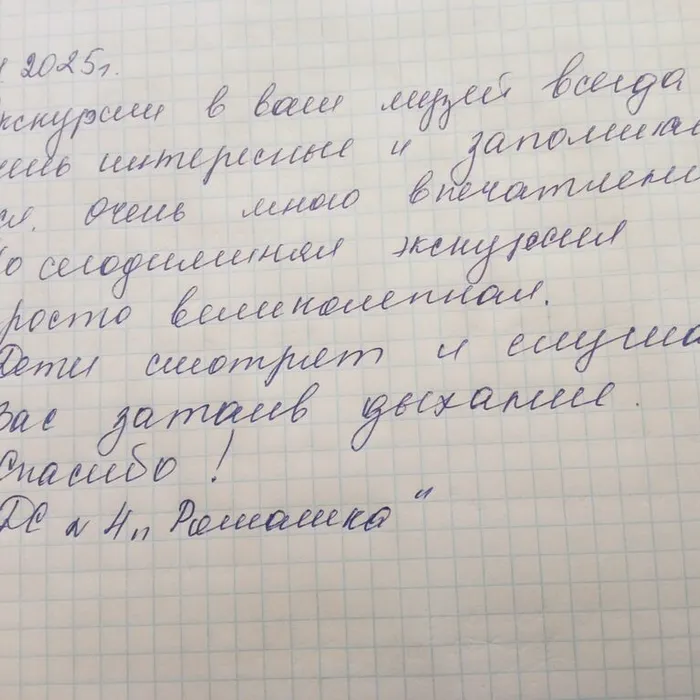 2025г.
кскурсии в ваш музей всегда
ень интересные и запомина
ся. Очень много впечатлени
о сегодняшняя экскурсия
росто великолепная.
Дети смотрят и слуша
Вас затаив дыхание.
Спасибо!
ДС № 4 „Ромашка"